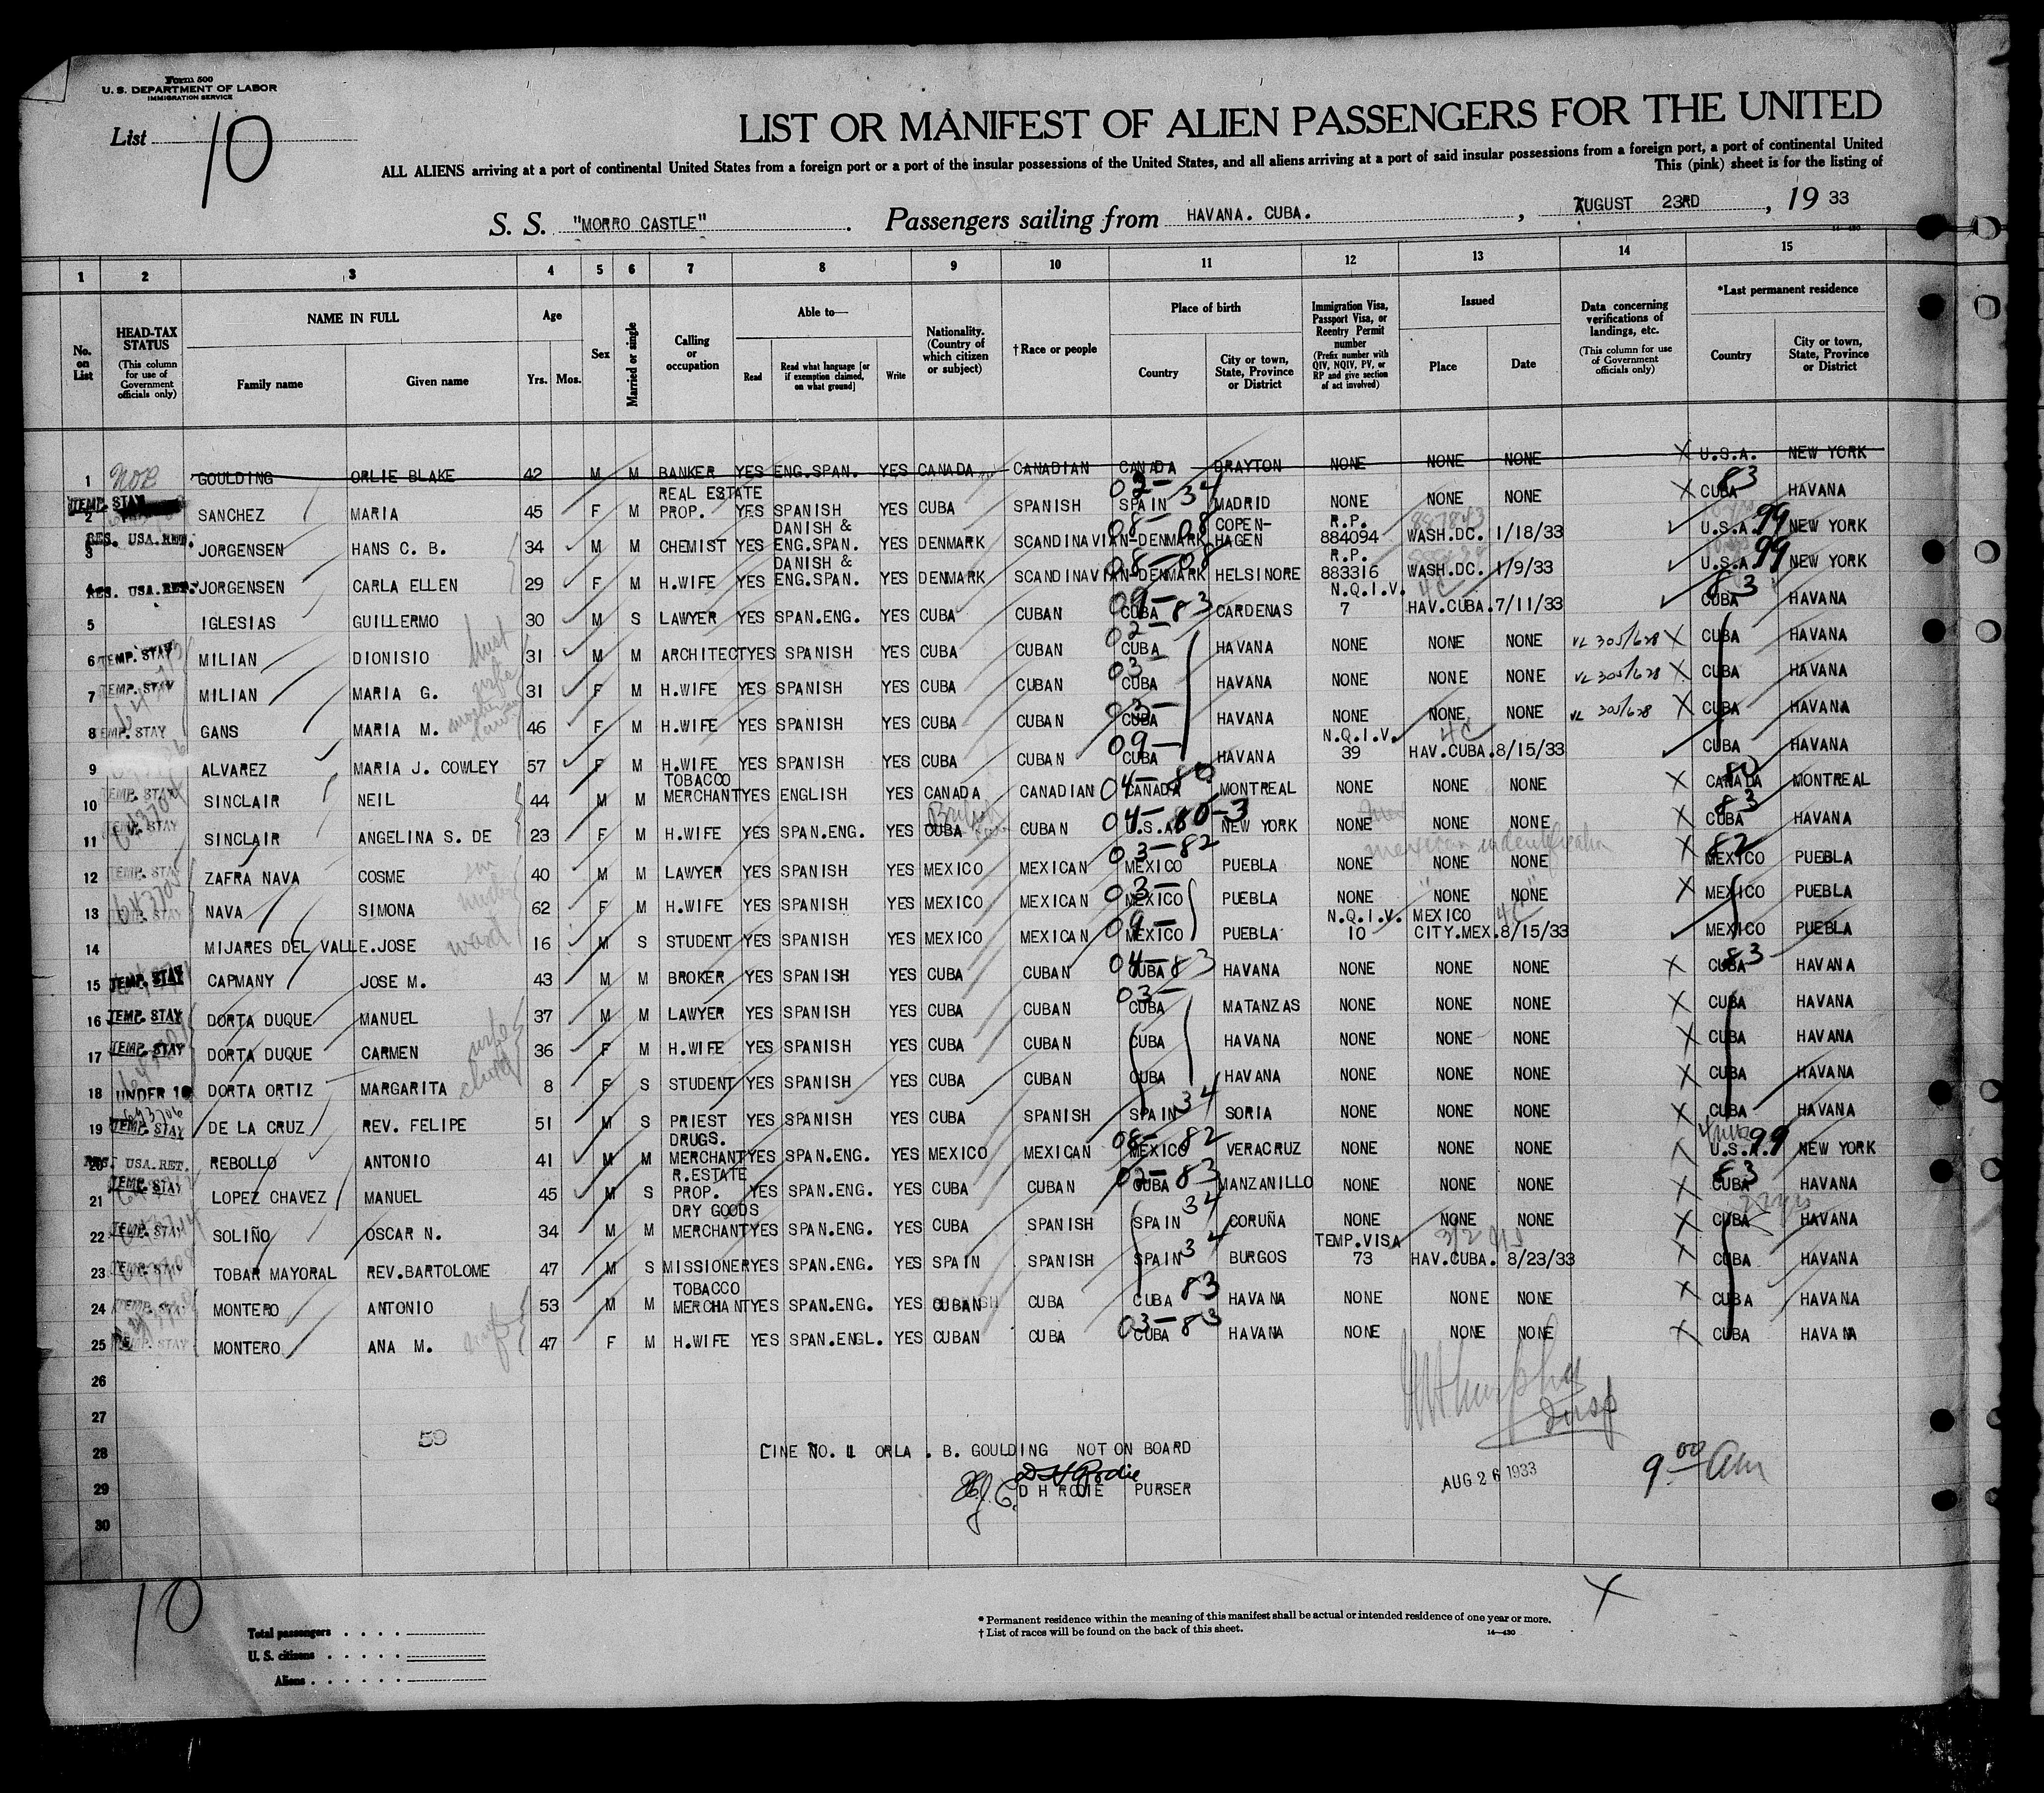 Form 500
U. S. DEPARTMENT OF LABOR
IMMIGRATION SERVICE
List 10
LIST OR MANIFEST OF ALIEN PASSENGERS FOR THE UNITED
ALL ALIENS arriving at a port of continental United States from a foreign port or a port of the insular possessions of the United States, and all aliens arriving at a port of said insular possessions from a foreign port, a port of continental United
This (pink) sheet is for the listing of
S. S. "MORRO CASTLE". Passengers sailing from HAVANA. CUBA., AUGUST 23RD, 19 33
14-430
1 2 3 4 5 6 7 8 9 10 11 12 13 14 15
No. on List
HEAD-TAX STATUS (This column for use of Government officials only)
NAME IN FULL Family name Given name
Age Yrs. Mos.
Sex
Married or single
Calling or occupation
Able to— Read Read what language [or if exemption claimed, on what ground] Write
Nationality. (Country of which citizen or subject)
†Race or people
Place of birth Country City or town, State, Province or District
Immigration Visa, Passport Visa, or Reentry Permit number (Prefix number with QIV, NQIV, PV, or RP and give section of act involved)
Issued Place Date
Data concerning verifications of landings, etc. (This column for use of Government officials only)
*Last permanent residence Country City or town, State, Province or District
1 NOB GOULDING ORLIE BLAKE 42 M M BANKER YES ENG.SPAN. YES CANADA CANADIAN CANADA DRAYTON NONE NONE NONE X U.S.A. NEW YORK
2 TEMP. STAY SANCHEZ MARIA 45 F M REAL ESTATE PROP. YES SPANISH YES CUBA SPANISH 02- SPAIN 34 MADRID NONE NONE NONE X CUBA 83 HAVANA
3 RES. USA.RET. JORGENSEN HANS C. B. 34 M M CHEMIST YES DANISH & ENG.SPAN. YES DENMARK SCANDINAVIAN 08-08 DENMARK COPEN-HAGEN R.P. 884094 WASH.DC. 1/18/33 U.S.A. 99 NEW YORK
4 RES. USA.RET. JORGENSEN CARLA ELLEN 29 F M H.WIFE YES DANISH & ENG.SPAN. YES DENMARK SCANDINAVIAN 08-08 DENMARK HELSINORE R.P. 883316 WASH.DC. 1/9/33 U.S.A. 99 NEW YORK
5 IGLESIAS GUILLERMO 30 M S LAWYER YES SPAN.ENG. YES CUBA CUBAN 09- CUBA 83 CARDENAS N.Q.I.V. 7 HAV.CUBA. 7/11/33 4C CUBA 83 HAVANA
6 TEMP. STAY MILIAN DIONISIO 31 M M ARCHITECT YES SPANISH YES CUBA CUBAN 02- CUBA HAVANA NONE NONE NONE VL 305/628 X CUBA HAVANA
7 TEMP. STAY MILIAN MARIA G. wife 31 F M H.WIFE YES SPANISH YES CUBA CUBAN 03- CUBA HAVANA NONE NONE NONE VL 305/628 X CUBA HAVANA
8 TEMP. STAY GANS MARIA M. 46 F M H.WIFE YES SPANISH YES CUBA CUBAN 03- CUBA HAVANA NONE NONE NONE VL 305/628 X CUBA HAVANA
9 ALVAREZ MARIA J. COWLEY 57 F M H.WIFE YES SPANISH YES CUBA CUBAN 09- CUBA HAVANA N.Q.I.V. 39 HAV.CUBA. 8/15/33 4C CUBA HAVANA
10 TEMP. STAY SINCLAIR NEIL 44 M M TOBACCO MERCHANT YES ENGLISH YES CANADA CANADIAN 04- CANADA 80 MONTREAL NONE NONE NONE X CANADA 80 MONTREAL
11 STAY SINCLAIR ANGELINA S. DE 23 F M H.WIFE YES SPAN.ENG. YES CUBA British CUBAN 04- U.S.A. 80-3 NEW YORK NONE NONE NONE X CUBA 83 HAVANA
12 TEMP. STAY ZAFRA NAVA COSME 40 M M LAWYER YES SPANISH YES MEXICO MEXICAN 03-82 MEXICO PUEBLA NONE NONE NONE mexican indentification X MEXICO 82 PUEBLA
13 TEMP. STAY NAVA SIMONA 62 F M H.WIFE YES SPANISH YES MEXICO MEXICAN 03- MEXICO PUEBLA NONE NONE NONE X MEXICO PUEBLA
14 MIJARES DEL VALLE.JOSE ward 16 M S STUDENT YES SPANISH YES MEXICO MEXICAN 09- MEXICO PUEBLA N.Q.I.V. 10 MEXICO CITY.MEX. 8/15/33 4C MEXICO PUEBLA
15 TEMP. STAY CAPMANY JOSE M. 43 M M BROKER YES SPANISH YES CUBA CUBAN 04- CUBA 83 HAVANA NONE NONE NONE X CUBA 83 HAVANA
16 TEMP. STAY DORTA DUQUE MANUEL 37 M M LAWYER YES SPANISH YES CUBA CUBAN 03- CUBA MATANZAS NONE NONE NONE X CUBA HAVANA
17 TEMP. STAY DORTA DUQUE CARMEN wife 36 F M H.WIFE YES SPANISH YES CUBA CUBAN CUBA HAVANA NONE NONE NONE X CUBA HAVANA
18 UNDER 16 DORTA ORTIZ MARGARITA child 8 F S STUDENT YES SPANISH YES CUBA CUBAN CUBA HAVANA NONE NONE NONE X CUBA HAVANA
19 643706 TEMP. STAY DE LA CRUZ REV. FELIPE 51 M S PRIEST YES SPANISH YES CUBA SPANISH SPAIN 34 SORIA NONE NONE NONE X CUBA HAVANA
20 RES. USA.RET. REBOLLO ANTONIO 41 M M DRUGS. MERCHANT YES SPAN.ENG. YES MEXICO MEXICAN 08-82 MEXICO VERACRUZ NONE NONE NONE X U.S.A. 99 NEW YORK
21 TEMP. STAY LOPEZ CHAVEZ MANUEL 45 M S R.ESTATE PROP. YES SPAN.ENG. YES CUBA CUBAN 02- CUBA 83 MANZANILLO NONE NONE NONE X CUBA 83 HAVANA
22 TEMP. STAY SOLIÑO OSCAR N. 34 M M DRY GOODS MERCHANT YES SPAN.ENG. YES CUBA SPANISH SPAIN 34 CORUÑA NONE NONE NONE X CUBA HAVANA
23 TEMP. STAY TOBAR MAYORAL REV.BARTOLOME 47 M S MISSIONER YES SPAN.ENG. YES SPAIN SPANISH SPAIN 34 BURGOS TEMP.VISA 73 HAV.CUBA. 8/23/33 X CUBA HAVANA
24 TEMP. STAY MONTERO ANTONIO 53 M M TOBACCO MERCHANT YES SPAN.ENG. YES CUBAN CUBA CUBA 83 HAVANA NONE NONE NONE X CUBA HAVANA
25 TEMP. STAY MONTERO ANA M. 47 F M H.WIFE YES SPAN.ENGL. YES CUBAN CUBA 03-83 CUBA HAVANA NONE NONE NONE X CUBA HAVANA
26
27
28 50 LINE NO. 1 ORLA . B. GOULDING NOT ON BOARD
29 D H ROJIE PURSER AUG 26 1933 9 00 am
30
10 X
Total passengers
U. S. citizens
Aliens
* Permanent residence within the meaning of this manifest shall be actual or intended residence of one year or more.
† List of races will be found on the back of this sheet.
14-430